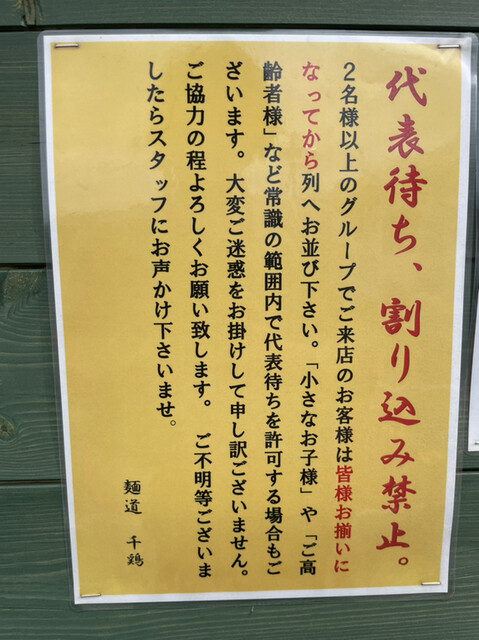 代表待ち、割り込み禁止。
2名様以上のグループでご来店のお客様は皆様お揃いに
なってから列へお並び下さい。「小さなお子様」や「ご高
齢者様」など常識の範囲内で代表待ちを許可する場合もご
ざいます。大変ご迷惑をお掛けして申し訳ございません。
ご協力の程よろしくお願い致します。 ご不明等ございま
したらスタッフにお声かけ下さいませ。
麺道 千鶏